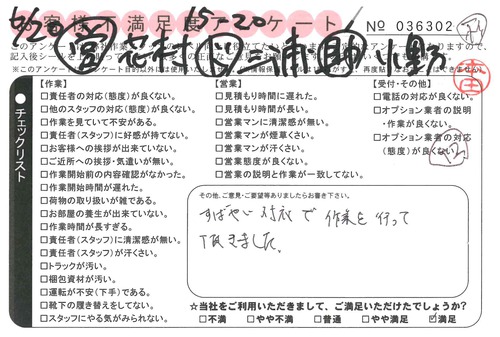 6/20 15-20
お客様不満足度アンケート
No 036302
※このアンケートは
チェックリスト
【作業】
□責任者の対応(態度)が良くない。
□他のスタッフの対応(態度)が良くない。
□作業を見ていて不安がある。
□責任者(スタッフ)に好感が持てない。
□お客様への挨拶が出来ていない。
□ご近所への挨拶・気遣いが無い。
□作業開始前の内容確認がなかった。
□作業開始時間が遅れた。
□荷物の取り扱いが雑である。
□お部屋の養生が出来ていない。
□作業時間が長すぎる。
□責任者(スタッフ)に清潔感が無い。
□責任者(スタッフ)が汗くさい。
□トラックが汚い。
□梱包資材が汚い。
□運転が不安(下手)である。
□靴下の履き替えをしてない。
□スタッフにやる気がみられない。
【営業】
□見積もり時間に遅れた。
□見積もり時間が長い。
□営業マンに清潔感が無い。
□営業マンが煙草くさい。
□営業マンが汗くさい。
□営業態度が良くない。
□営業の説明と作業が一致してない。
【受付・その他】
□電話の対応が良くない。
□オプション業者の説明
・作業が良くない。
□オプション業者の対応
(態度)が良くない。
その他、ご意見・ご要望等ありましたらお書き下さい。
すばやい対応で作業を行って
頂きました。
☆当社をご利用いただきまして、ご満足いただけたでしょうか?
□不満 □やや不満 □普通 □やや満足 ☑満足